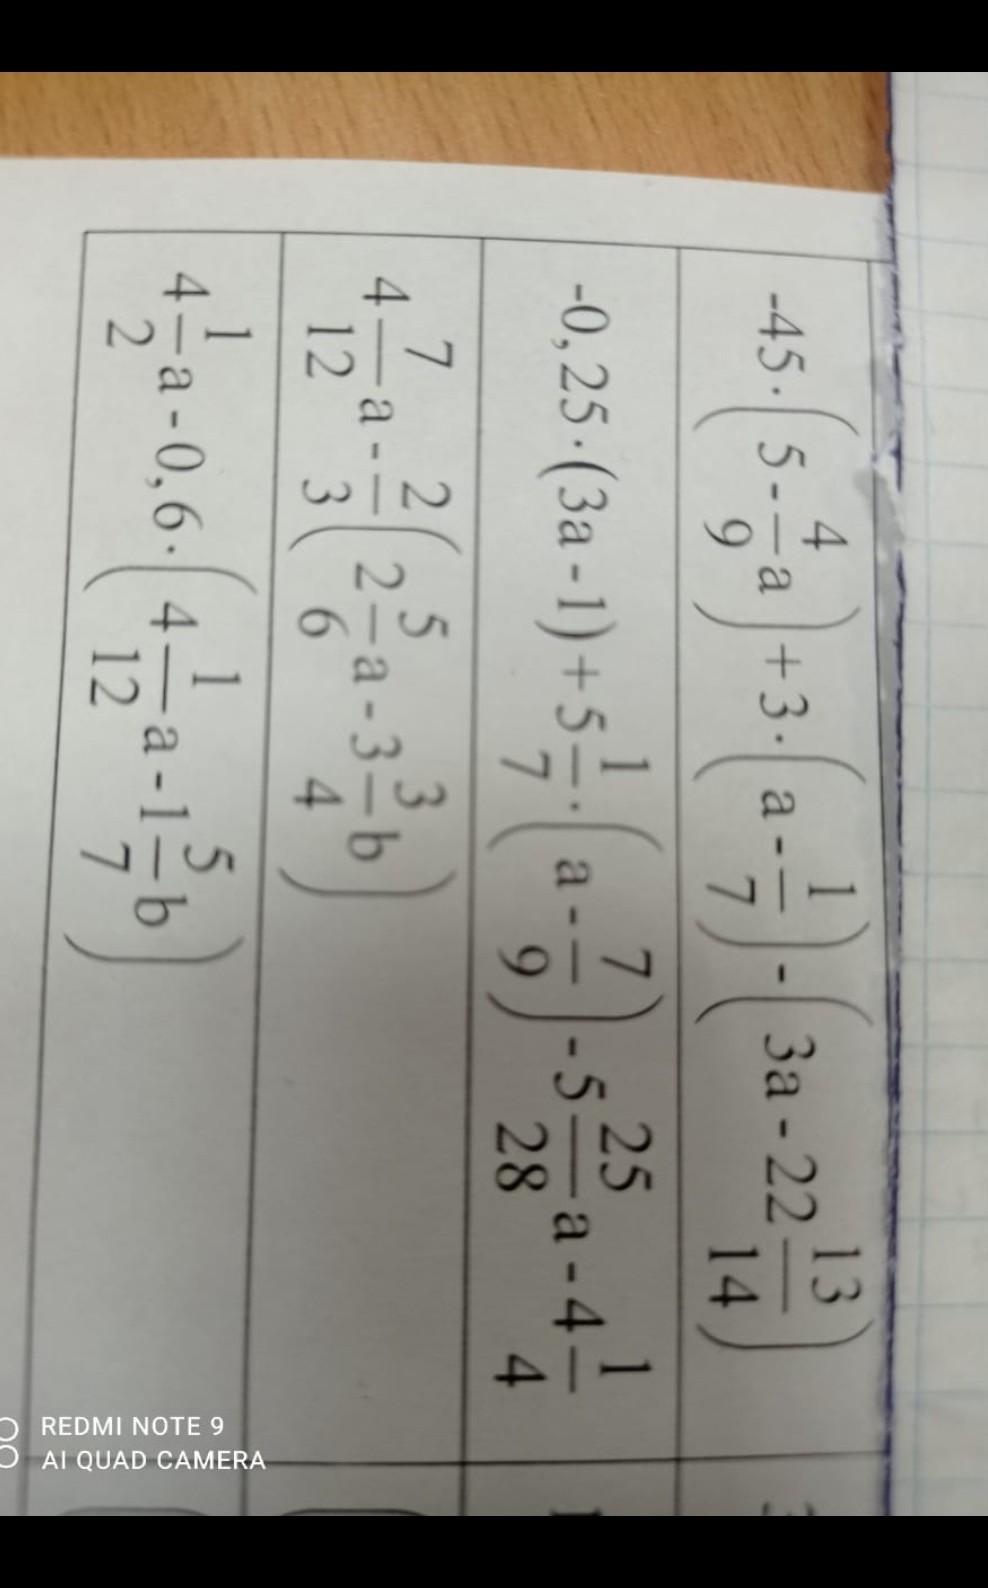 -45·(5-4/9a)+3·(a-1/7)-(3a-22 13/14)
-0,25·(3a-1)+5 1/7·(a-7/9)-5 25/28a-4 1/4
4 7/12a-2/3(2 5/6a-3 3/4b)
4 1/2a-0,6·(4 1/12a-1 5/7b)
REDMI NOTE 9
AI QUAD CAMERA